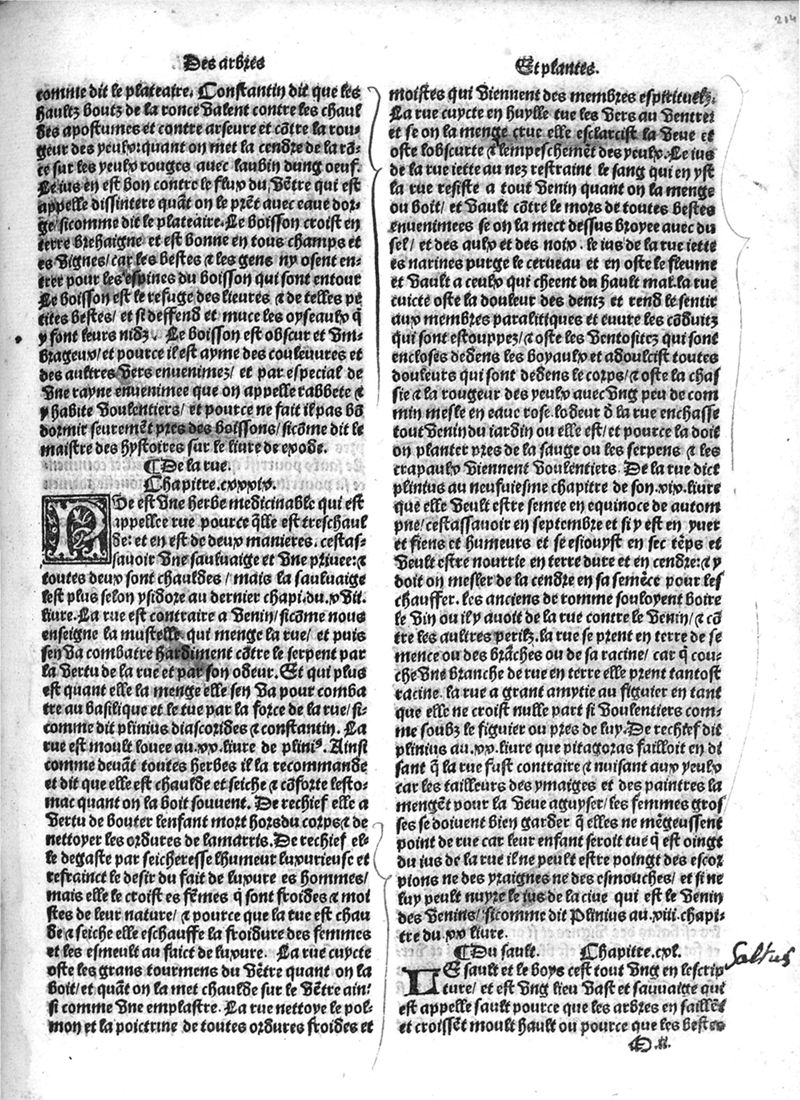 214
Des arbres
comme dit le plateaire. Constantin dit que les
haultz boutz de la ronce valent contre les chaul
des apostumes et contre arseure et cōtre la rou-
geur des yeulx: quant on met la cendre de la rō-
ce sur les yeulx rouges avec laubin dung oeuf.
Le ius en est bon contre le flux du vētre qui est
appelle dissintere quāt on le prēt avec eaue dor-
ge/ sicomme dit le plateaire. Le boisson croist en
terre brehaigne et est bonne en tous champs et
es vignes/ car les bestes ⁊ les gens ny osent en-
trer pour les espines du boisson qui sont entour
Le boisson est le refuge des lieures ⁊ de telles pe
tites bestes/ et si deffend et muce les oyseaulx q̄
y font leurs nidz. Le boisson est obscur et vm-
brageux/ et pource il est ayme des couleuures et
des aultres vers enuenimez/ et par especial de
vne rayne enuenimee que on appelle rabbete ⁊
y habite voulentiers/ et pource ne fait il pas bō
dormir seuremēt pres des boissons/ sicōme dit le
maistre des hystoires sur le liure de exode.
¶ De la rue.
Chapitre.cxxxix.
RVe est vne herbe medicinable qui est
appellee rue pource q̄lle est treschaul
de: et en est de deux manieres. cestas-
sauoir vne sauluaige et vne priuee: ⁊
toutes deux sont chauldes/ mais la sauluaige
lest plus selon ysidore au dernier chapi.du.xvii.
liure. La rue est contraire a venin/ sicōme nous
enseigne la mustelle qui menge la rue/ et puis
sen va combatre hardiment cōtre le serpent par
la vertu de la rue et par son odeur. Et qui plus
est quant elle la menge elle sen va pour comba
tre au basilique et le tue par la force de la rue/ si-
comme dit plinius diascorides ⁊ constantin. La
rue est moult louee au.xx.liure de pliniꝰ. Ainsi
comme deuāt toutes herbes il la recommande
et dit que elle est chaulde et seiche ⁊ cōforte lesto-
mac quant on la boit souuent. De rechief elle a
vertu de bouter lenfant mort hors du corps ⁊ de
nettoyer les ordures de lamarris. De rechief el-
le degaste par seicheresse lhumeur luxurieuse et
refrainct le desir du fait de luxure es hommes/
mais elle le croist es fēmes q̄ sont froides ⁊ moi
stes de leur nature/ ⁊ pource que la rue est chau
de ⁊ seiche elle eschauffe la froidure des femmes
et les esmeult au faict de luxure. La rue cuycte
oste les grans tourmens du vētre quant on la
boit/ et quāt on la met chaulde sur le vētre ain-
si comme vne emplastre. La rue nettoye le pol-
mon et la poictrine de toutes ordures froides et
Et plantes.
moistes qui viennent des membres espirituelz.
La rue cuycte en huylle tue les vers au ventre:
et se on la menge crue elle esclarcist la veue et
oste lobscurte ⁊ lempeschemēt des yeulx. Le ius
de la rue iette au nez restraint le sang qui en yst
la rue resiste a tout venin quant on la menge
ou boit/ et vault cōtre le mors de toutes bestes
enuenimees se on la mect dessus broyee avec du
sel/ et des aulx et des noix. le ius de la rue iette
es narines purge le cerueau et en oste le fleume
et vault a ceulx qui cheent du hault mal. la rue
cuicte oste la douleur des dentz et rend le sentir
aux membres paralitiques et euure les cōduitz
qui sont estouppez/ ⁊ oste les ventositez qui sont
encloses dedens les boyaulx et adoulcist toutes
douleurs qui sont dedens le corps/ ⁊ oste la chas
sie ⁊ la rougeur des yeulx avec vng peu de com
min mesle en eaue rose. lodeur d̄ la rue enchasse
tout venin du iardin ou elle est/ et pource la doit
on planter pres de la sauge ou les serpens ⁊ les
crapaulx viennent voulentiers. De la rue dict
plinius au neufuiesme chapitre de son.xix.liure
que elle veult estre semee en equinoce de autom
pne/ cestassauoir en septembre et si y est en yuer
et fiens et humeurs et se esiouyst en sec tēps et
veult estre nourrie en terre dure et en cendre: ⁊ y
doit on mesler de la cendre en sa semēce pour les
chauffer. les anciens de romme souloyent boire
le vin ou il y auoit de la rue contre le venin/ ⁊ cō
tre les aultres perilz. la rue se prent en terre de se
mence ou des brāches ou de sa racine/ car q̄ cou-
che vne branche de rue en terre elle prent tantost
racine. la rue a grant amytie au figuier en tant
que elle ne croist nulle part si voulentiers com-
me soubz le figuier ou pres de luy. De rechief dit
plinius au.xx.liure que pitagoras failloit en di
sant q̄ la rue fust contraire ⁊ nuisant aux yeulx
car les tailleurs des ymaiges et des paintres la
mengēt pour la veue aguyser/ les femmes gros
ses se doiuent bien garder q̄ elles ne mēgeussent
point de rue car leur enfant seroit tue q̄ est oingt
du ius de la rue il ne peult estre poingt des escor
pions ne des yraignes ne des esmouches/ et si ne
luy peult nuyre le ius de la ciue qui est le venin
des venins/ sicomme dit Plinius au.viii.chapi-
tre du.xx liure.
¶ Du sault. Chapitre.cxl.
LE sault et le boys cest tout vng en lescrip
ture/ et est vng lieu vast et sauuaige qui
est appelle sault pource que les arbres en saillēt
et croissēt moult hault ou pource que les bestes
Saltus